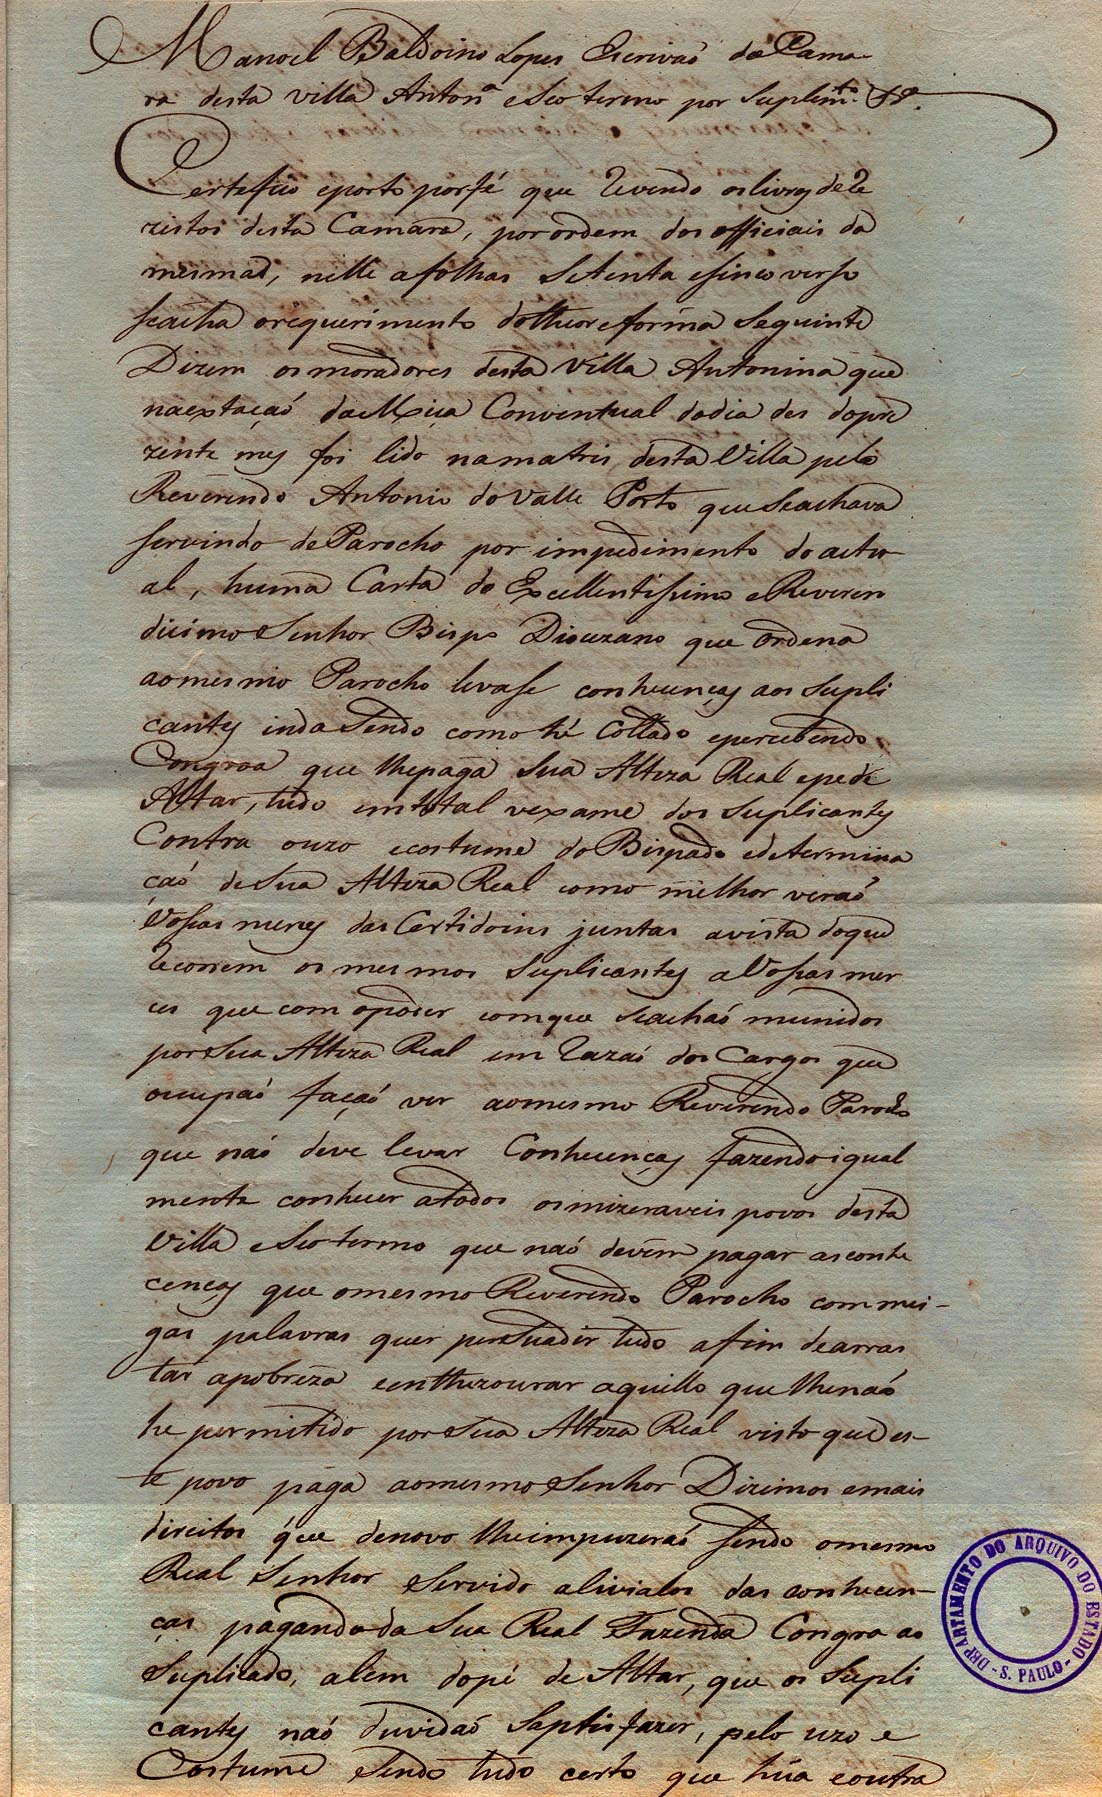 Manoel Baldoino Lopes Escrivaõ da Cama-
ra desta villa Anton.ª e seo termo por suplim.to &.ª
Certefico e porto por fé que revendo os livros de re
zistos desta Camara, por ordem dos officiais da
mesmad, nelle a folhas setenta e sinco verso
seacha o requerimento do theor e forma seguinte
Dizem os moradores desta Villa Antonina que
na extaçaõ da Misça Conventual do dia des do pre
zente mes foi lido na matris desta Villa pelo
Reverendo Antonio do Valle Porto que se achava
servindo de Parocho por impedimento do actu-
al, huma Carta do Excellentissimo e Reveren
dicimo Senhor Bispo Diouzano que ordena
ao mesmo Parocho levase conhecenças aos supli
cantes inda sendo como hé Collado e percebendo
Congroa que lhe paga Sua Alteza Real e pede
Altar, tudo em total vexame dos Suplicantes
Contra ouzo e costume do Bispado e determina
çaõ de Sua Alteza Real como milhor veraõ
Vossas merces das Certidoins juntas a vista do que
recorrem os mesmos suplicantes a Vossas mer
ces que com o poder com que se achaõ munidos
por Sua Alteza Real em razaõ dos Cargos que
ocupaõ façaõ ver ao mesmo Reverendo Parocho
que naõ deve levar Conhecenças fazendo igual
mente conhecer a todos os mizeraveis povos desta
Villa e seo termo que naõ devem pagar as conhe
cenças que o mesmo Reverendo Parocho com mei-
gas palavras quer persuadir tudo a fim de arras
tar a pobreza e enthezourar aquillo que lhe naõ
he permitido por Sua Alteza Real visto que es-
te povo paga ao mesmo Senhor Dizimos e mais
direitos que de novo lhe impuzeraõ sendo o mesmo
Real Senhor servido alivialos das conhecen-
ças pagando da Sua Real Fazenda Congroa ao
Suplicado, alem do pé de Altar, que os Supli
cantes naõ duvidaõ saptisfazer, pelo uzo e
Costume sendo tudo certo que húa contra
DEPARTAMENTO DO ARQUIVO DO ESTADO
- S. PAULO -